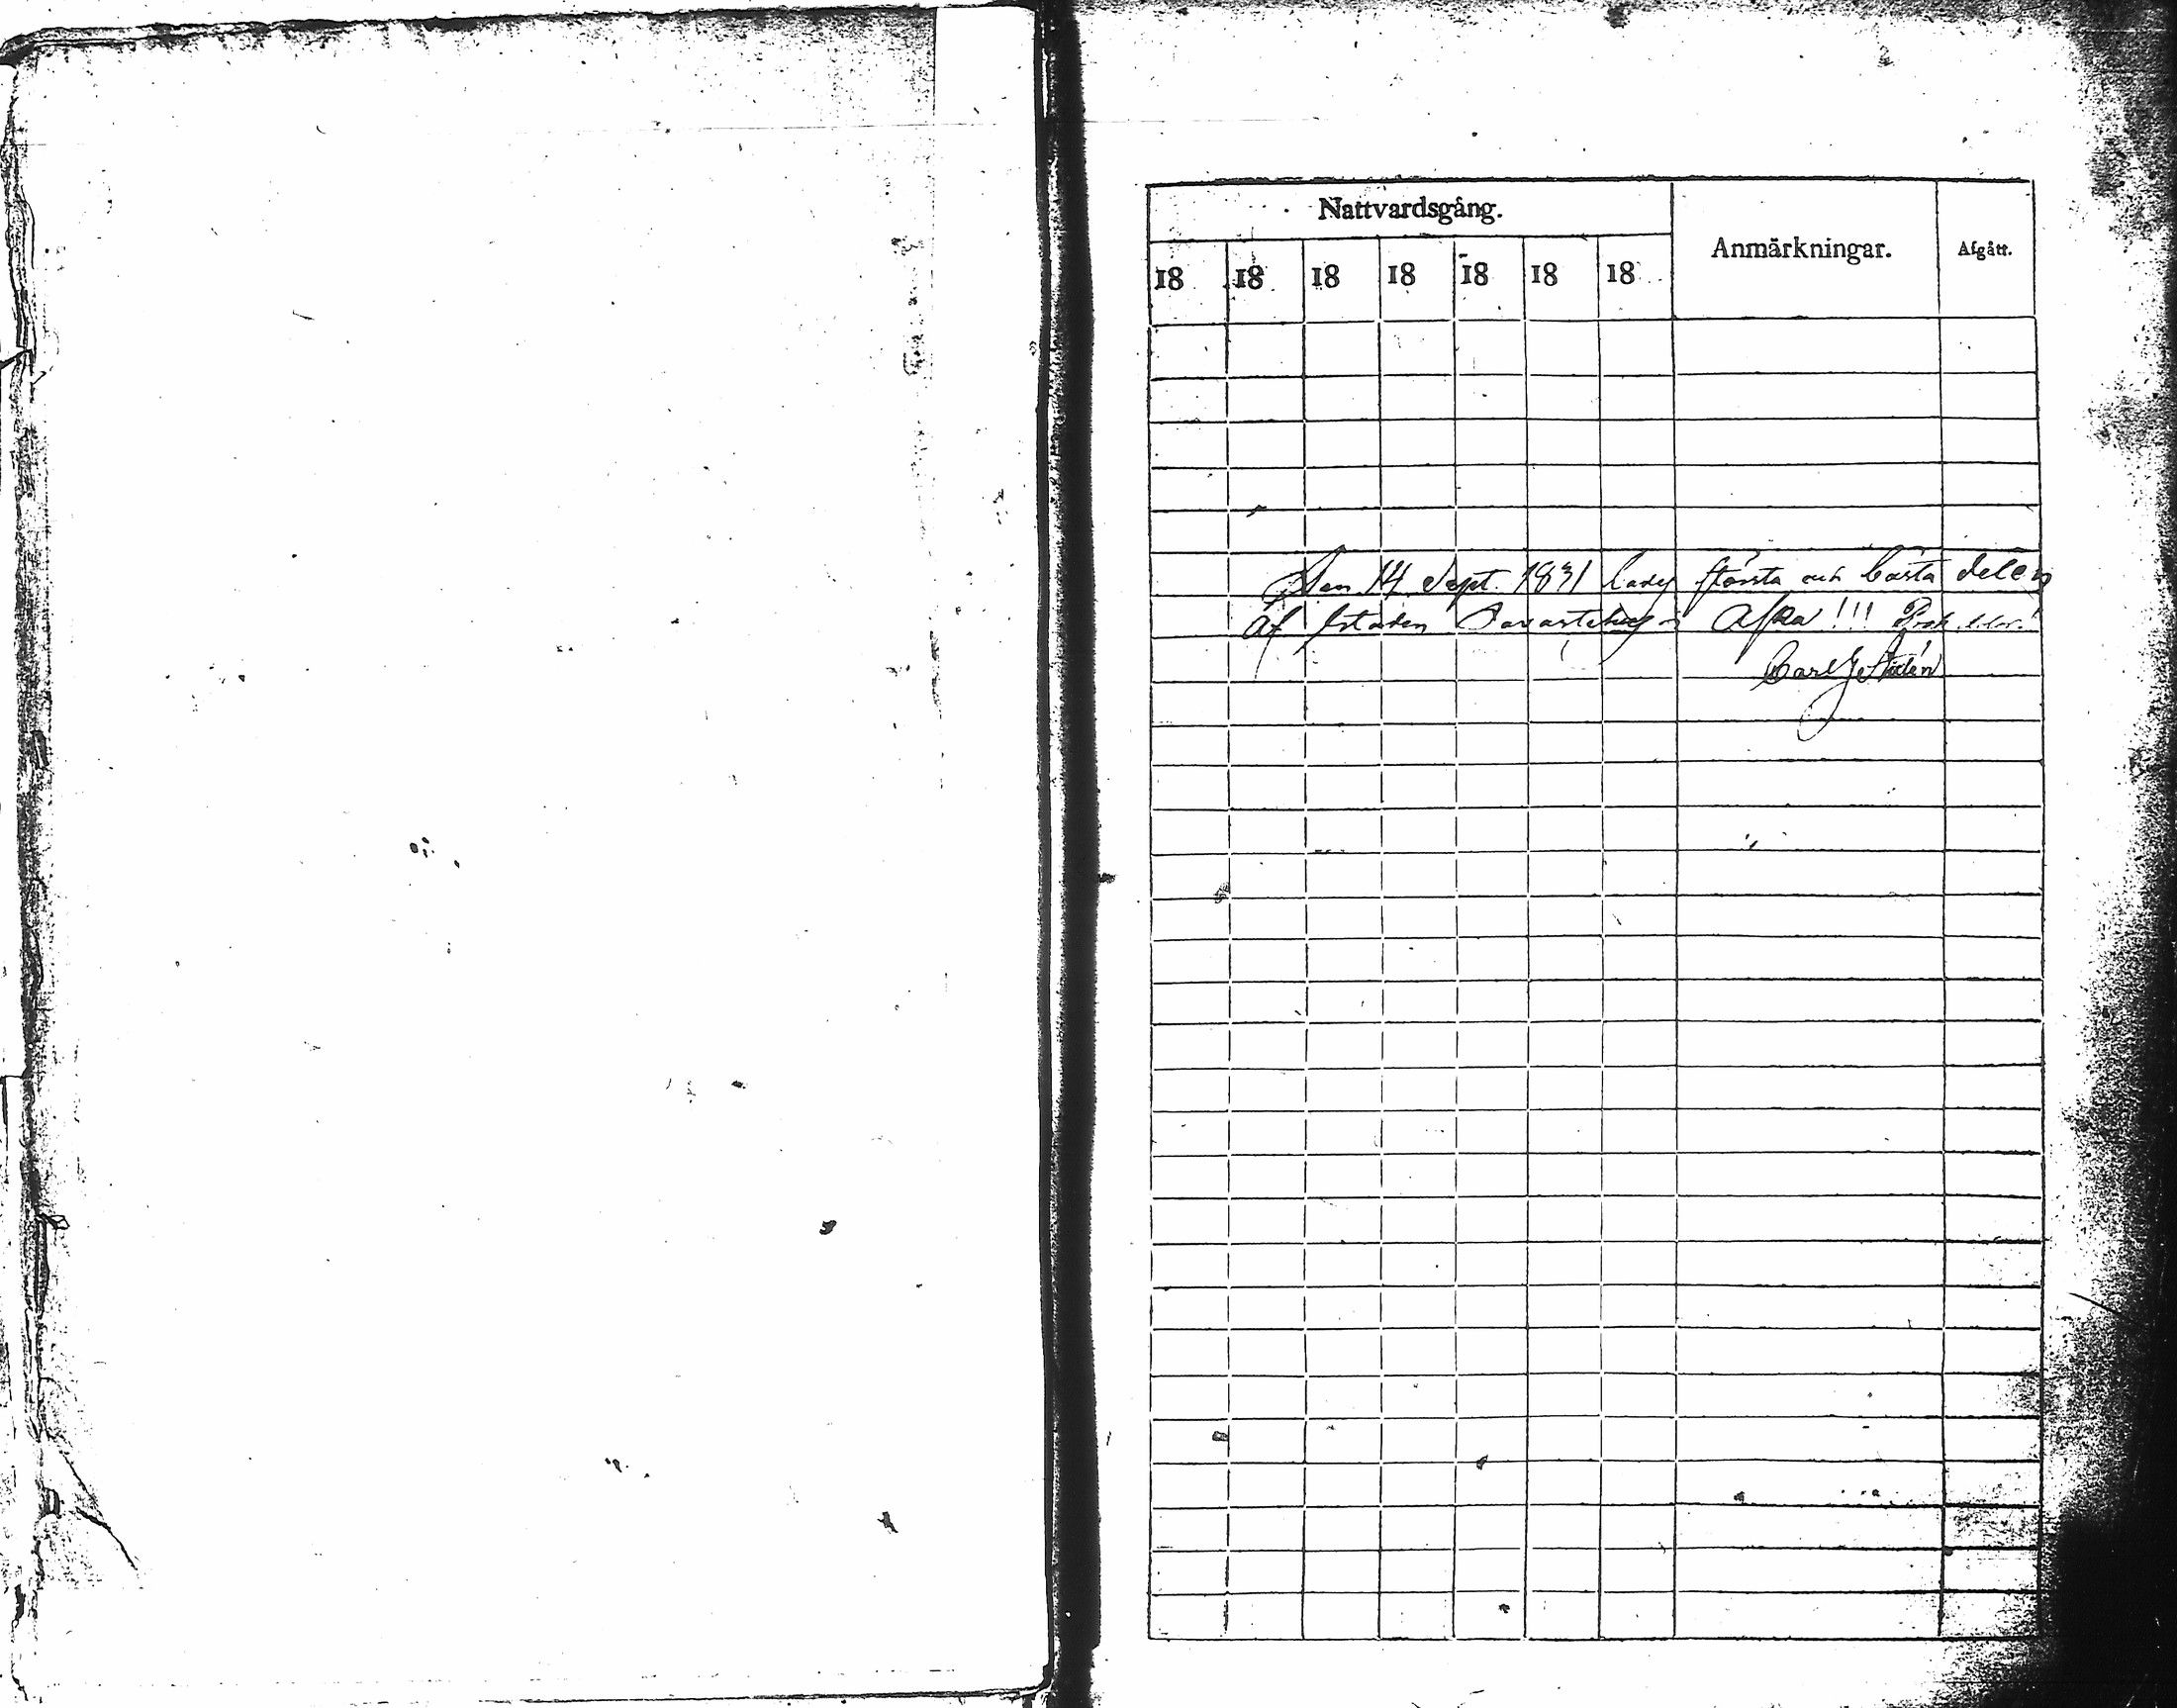 Nattvardsgång.
Anmärkningar.
Afgått.
18 18 18 18 18 18 18
Den 14 Sept. 1831 lades största och bästa delen
af staden Tavastehus i Aska!!!